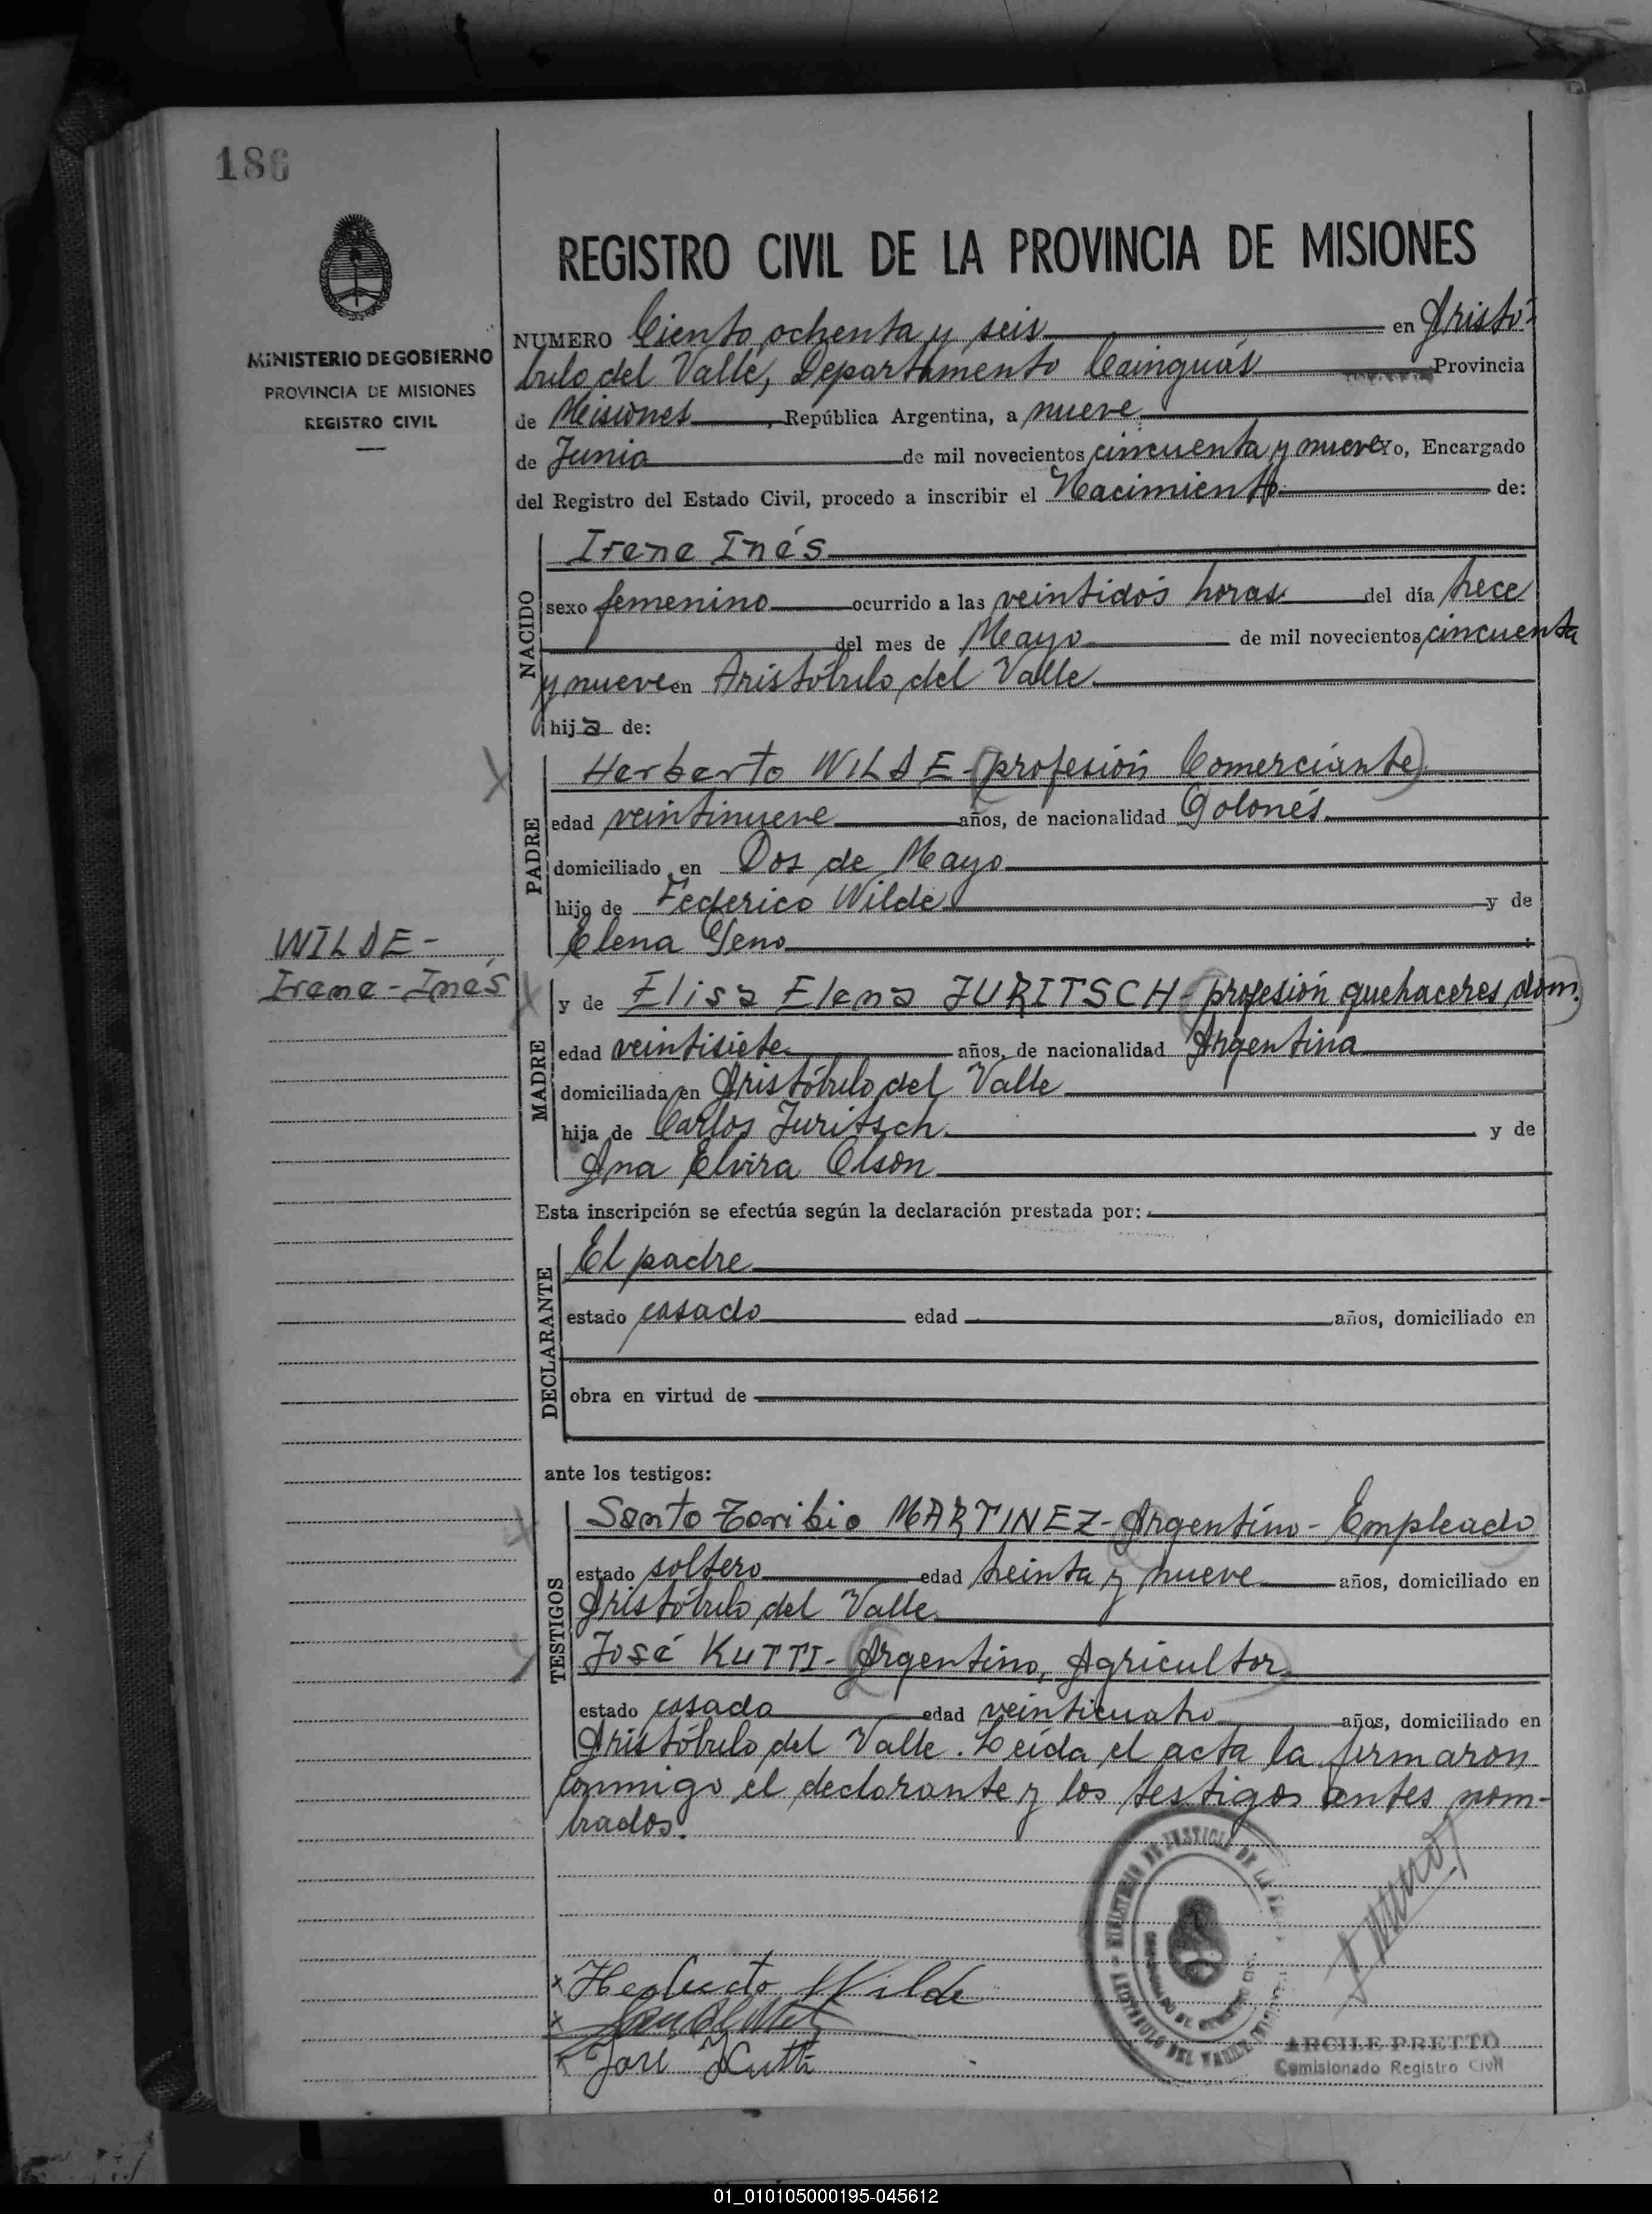 186
REGISTRO CIVIL DE LA PROVINCIA DE MISIONES
MINISTERIO DE GOBIERNO
PROVINCIA DE MISIONES
REGISTRO CIVIL
NUMERO Ciento ochenta y seis en Aristó-
bulo del Valle, Departamento Cainguás Provincia
de Misiones, República Argentina, a nueve
de Junio de mil novecientos cincuenta y nueve yo, Encargado
del Registro del Estado Civil, procedo a inscribir el Nacimiento de:
NACIDO
Irene Inés
sexo femenino ocurrido a las veintidós horas del día trece
del mes de Mayo de mil novecientos cincuenta
y nueve en Aristóbulo del Valle.
hija de:
PADRE
Herberto WILDE - (profesión Comerciante)
edad veintinueve años, de nacionalidad Polonés
domiciliado en Dos de Mayo
hijo de Federico Wilde y de
Elena
WILDE -
Irene - Inés
MADRE
y de Elisa Elena JURITSCH - (profesión quehaceres dom.)
edad veintisiete años, de nacionalidad Argentina
domiciliada en Aristóbulo del Valle
hija de Carlos Juritsch y de
Ana Elvira Olson
Esta inscripción se efectúa según la declaración prestada por:
DECLARANTE
El padre
estado casado edad años, domiciliado en
obra en virtud de
ante los testigos:
TESTIGOS
Santo Toribio MARTINEZ - Argentino - Empleado
estado soltero edad treinta y nueve años, domiciliado en
Aristóbulo del Valle
José KUTTI - Argentino, Agricultor
estado casado edad veinticuatro años, domiciliado en
Aristóbulo del Valle. Leída el acta la firmaron
conmigo el declarante y los testigos antes nom-
brados.
Herberto Wilde
José Kutti
ARCILE PRETTO
Comisionado Registro Civil
01_010105000195-045612